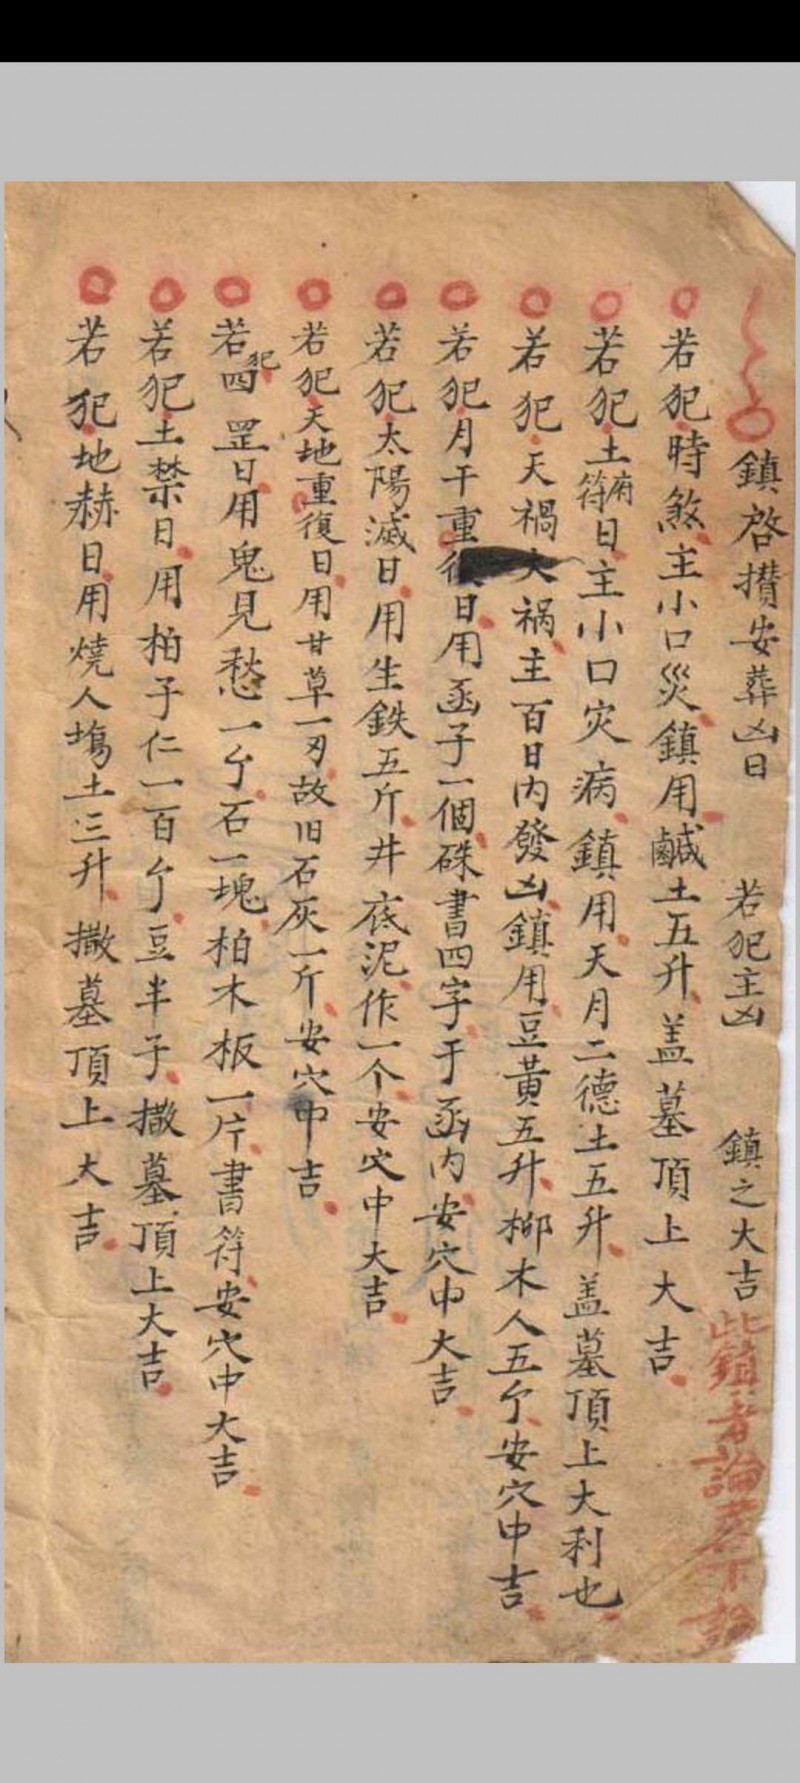 鎮啓攅安葬凶日 若犯主凶 鎮之大吉 此鎮者論墓下
若犯時煞主小口災鎮用鹹土五升盖墓頂上大吉
若犯土府符日主小口灾病鎮用天月二德土五升盖墓頂上大利也
若犯天禍大祸主百日内發凶鎮用豆黃五升柳木人五个安穴中吉
若犯月干重復日用函子一個硃書四字于函内安穴中大吉
若犯太陽滅日用生鉄五斤井底泥作一个安穴中大吉
若犯天地重復日用甘草一刃故旧石灰一斤安穴中吉
若犯四罡日用鬼見愁一个石一塊柏木板一片書符安穴中大吉
若犯土禁日用柏子仁一百个豆半子撒墓頂上大吉
若犯地赫日用燒人塲土三升撒墓頂上大吉